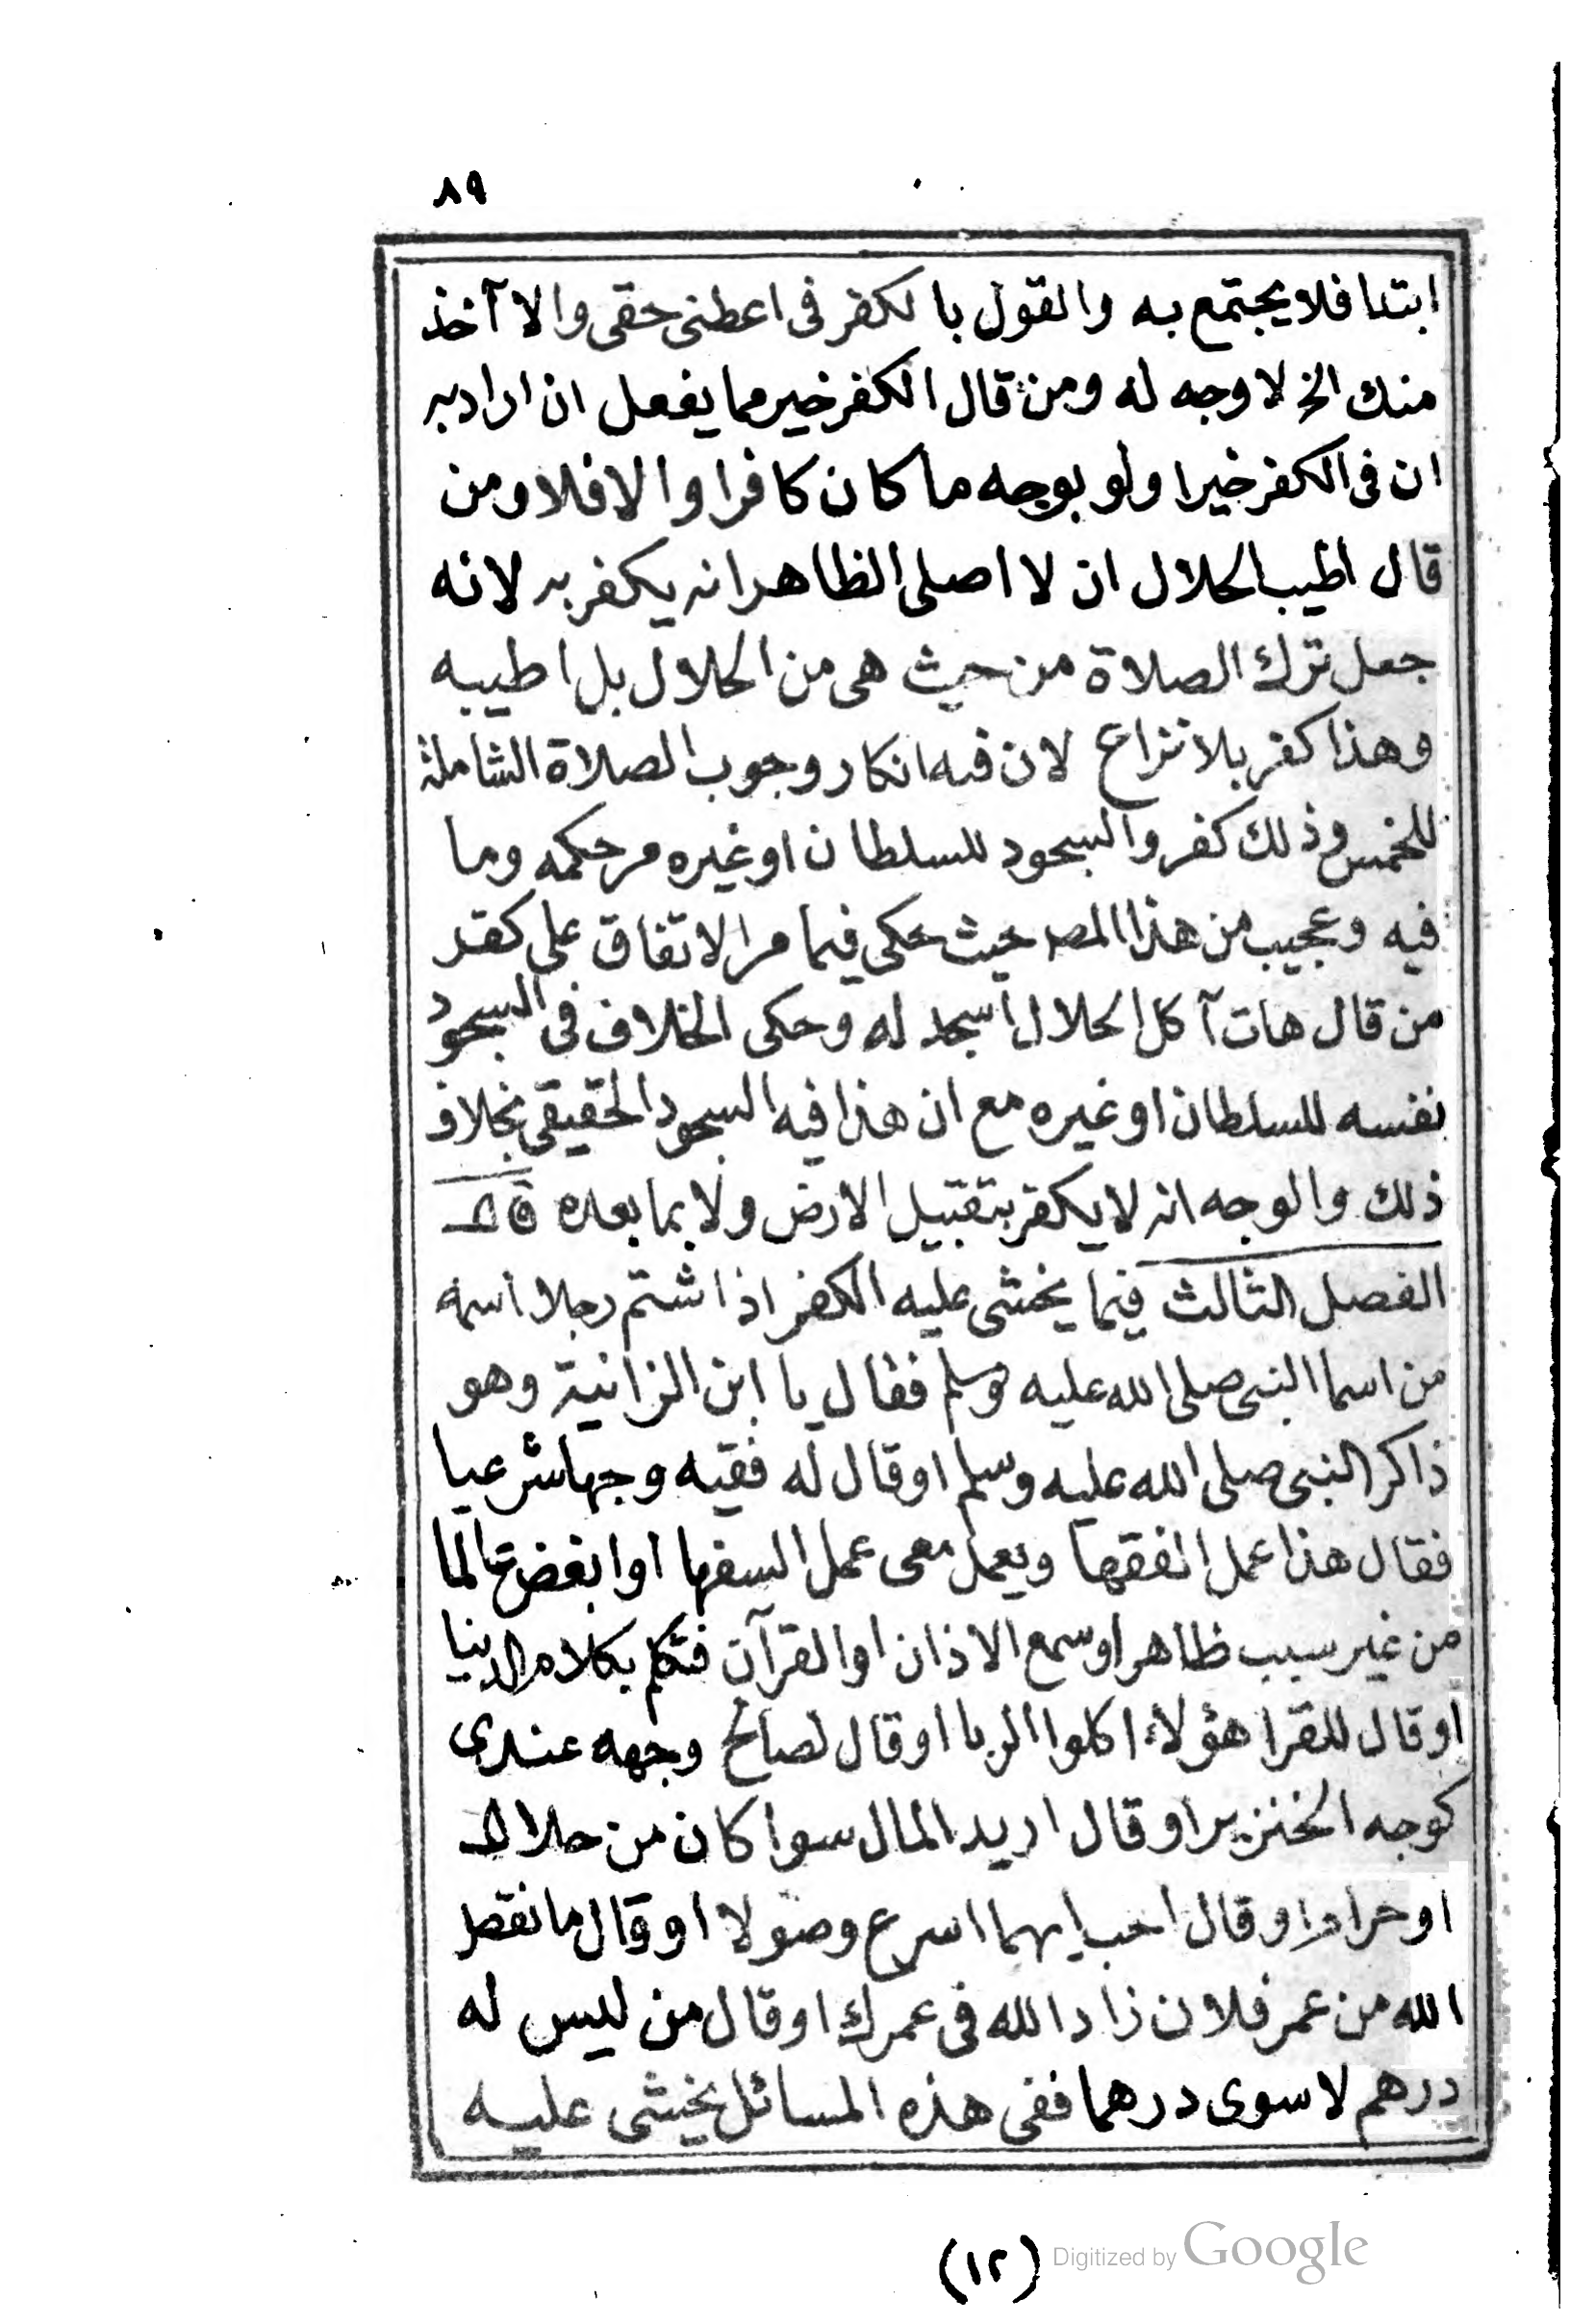 ٨٩
ابتدا فلا يجتمع به والقول بالكفر فى اعطنى حقى والا آخذ
منك الخ لا وجه له ومن قال الكفر خير مما يفعل ان اراد به
ان فى الكفر خيرا ولو بوجه ما كان كافرا والا فلا ومن
قال اطيب الحلال ان لا اصلى الظاهر انه يكفر به لانه
جعل ترك الصلاة من حيث هى من الحلال بل اطيبه
وهذا كفر بلا نزاع لان فيه انكار وجوب الصلاة الشاملة
للخمس وذلك كفر والسجود للسلطان او غيره مر حكمه وما
فيه وعجيب من هذا المص حيث حكى فيما مر الاتفاق على كفر
من قال هات آكل الحلال اسجد له وحكى الخلاف فى السجود
نفسه للسلطان او غيره مع ان هذا فيه السجود الحقيقى بخلاف
ذلك والوجه انه لا يكفر بتقبيل الارض ولا بما بعده قال
الفصل الثالث فيما يخشى عليه الكفر اذا شتم رجلا اسمه
من اسما النبى صلى الله عليه وسلم فقال يا ابن الزانية وهو
ذاكر النبى صلى الله عليه وسلم او قال له فقيه وجها شرعيا
فقال هذا عمل الفقها ويعمل معى عمل السفها او ابغض عالما
من غير سبب ظاهر او سمع الاذان او القرآن فتكلم بكلام الدنيا
او قال للقرا هؤلاء اكلوا الربا او قال لصالح وجهه عندى
كوجه الخنزير او قال اريد المال سوا كان من حلال
او حرام او قال احب ايهما اسرع وصولا او قال ما نقص
الله من عمر فلان زاد الله فى عمرك او قال من ليس له
درهم لا سوى درهما ففى هذه المسائل يخشى عليه
(١٢)
Digitized by Google